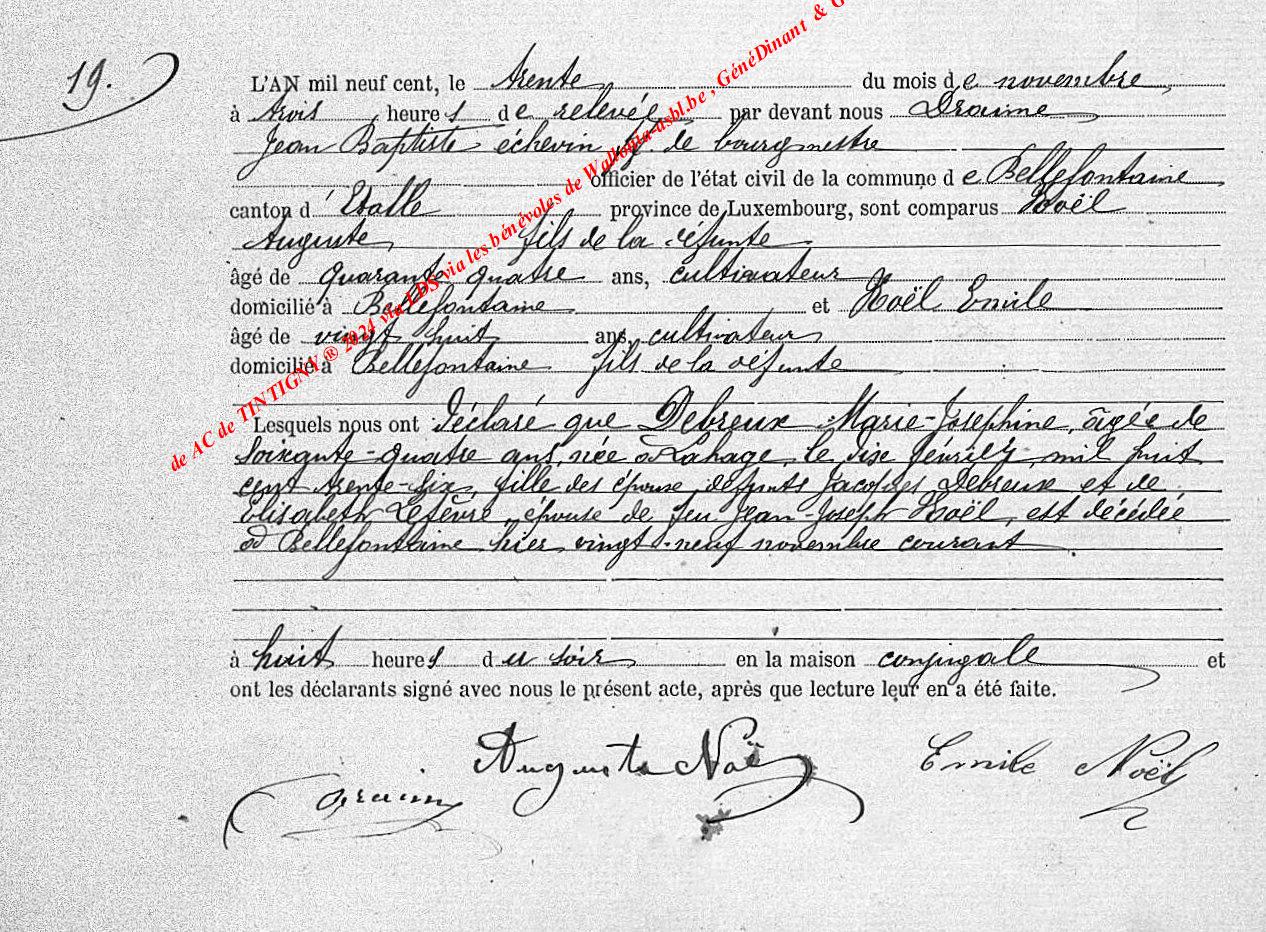 19.
L'AN mil neuf cent, le trente du mois de novembre
à trois heures de relevée par devant nous Draime
Jean Baptiste échevin ff de bourgmestre
officier de l'état civil de la commune de Bellefontaine
canton d'Etalle province de Luxembourg, sont comparus Noël
Auguste, fils de la défunte
âgé de quarante quatre ans, cultivateur
domicilié à Bellefontaine et Noël Emile
âgé de vingt huit ans, cultivateur
domicilié à Bellefontaine fils de la défunte
Lesquels nous ont déclaré que Debreux Marie-Josephine, âgée de
soixante-quatre ans, née à Lahage, le dix février, mil huit
cent trente-six, fille des époux défunts Jacques Debreux et de
Elisabeth Lefèvre, épouse de feu Jean-Joseph Noël, est décédée
à Bellefontaine hier vingt-neuf novembre courant
à huit heures du soir en la maison conjugale et
ont les déclarants signé avec nous le présent acte, après que lecture leur en a été faite.
Auguste Noël Emile Noël
de AC de TINTIGNY ® 2024 via LDS via les bénévoles de Wallonia-asbl.be, GénéDinant & G